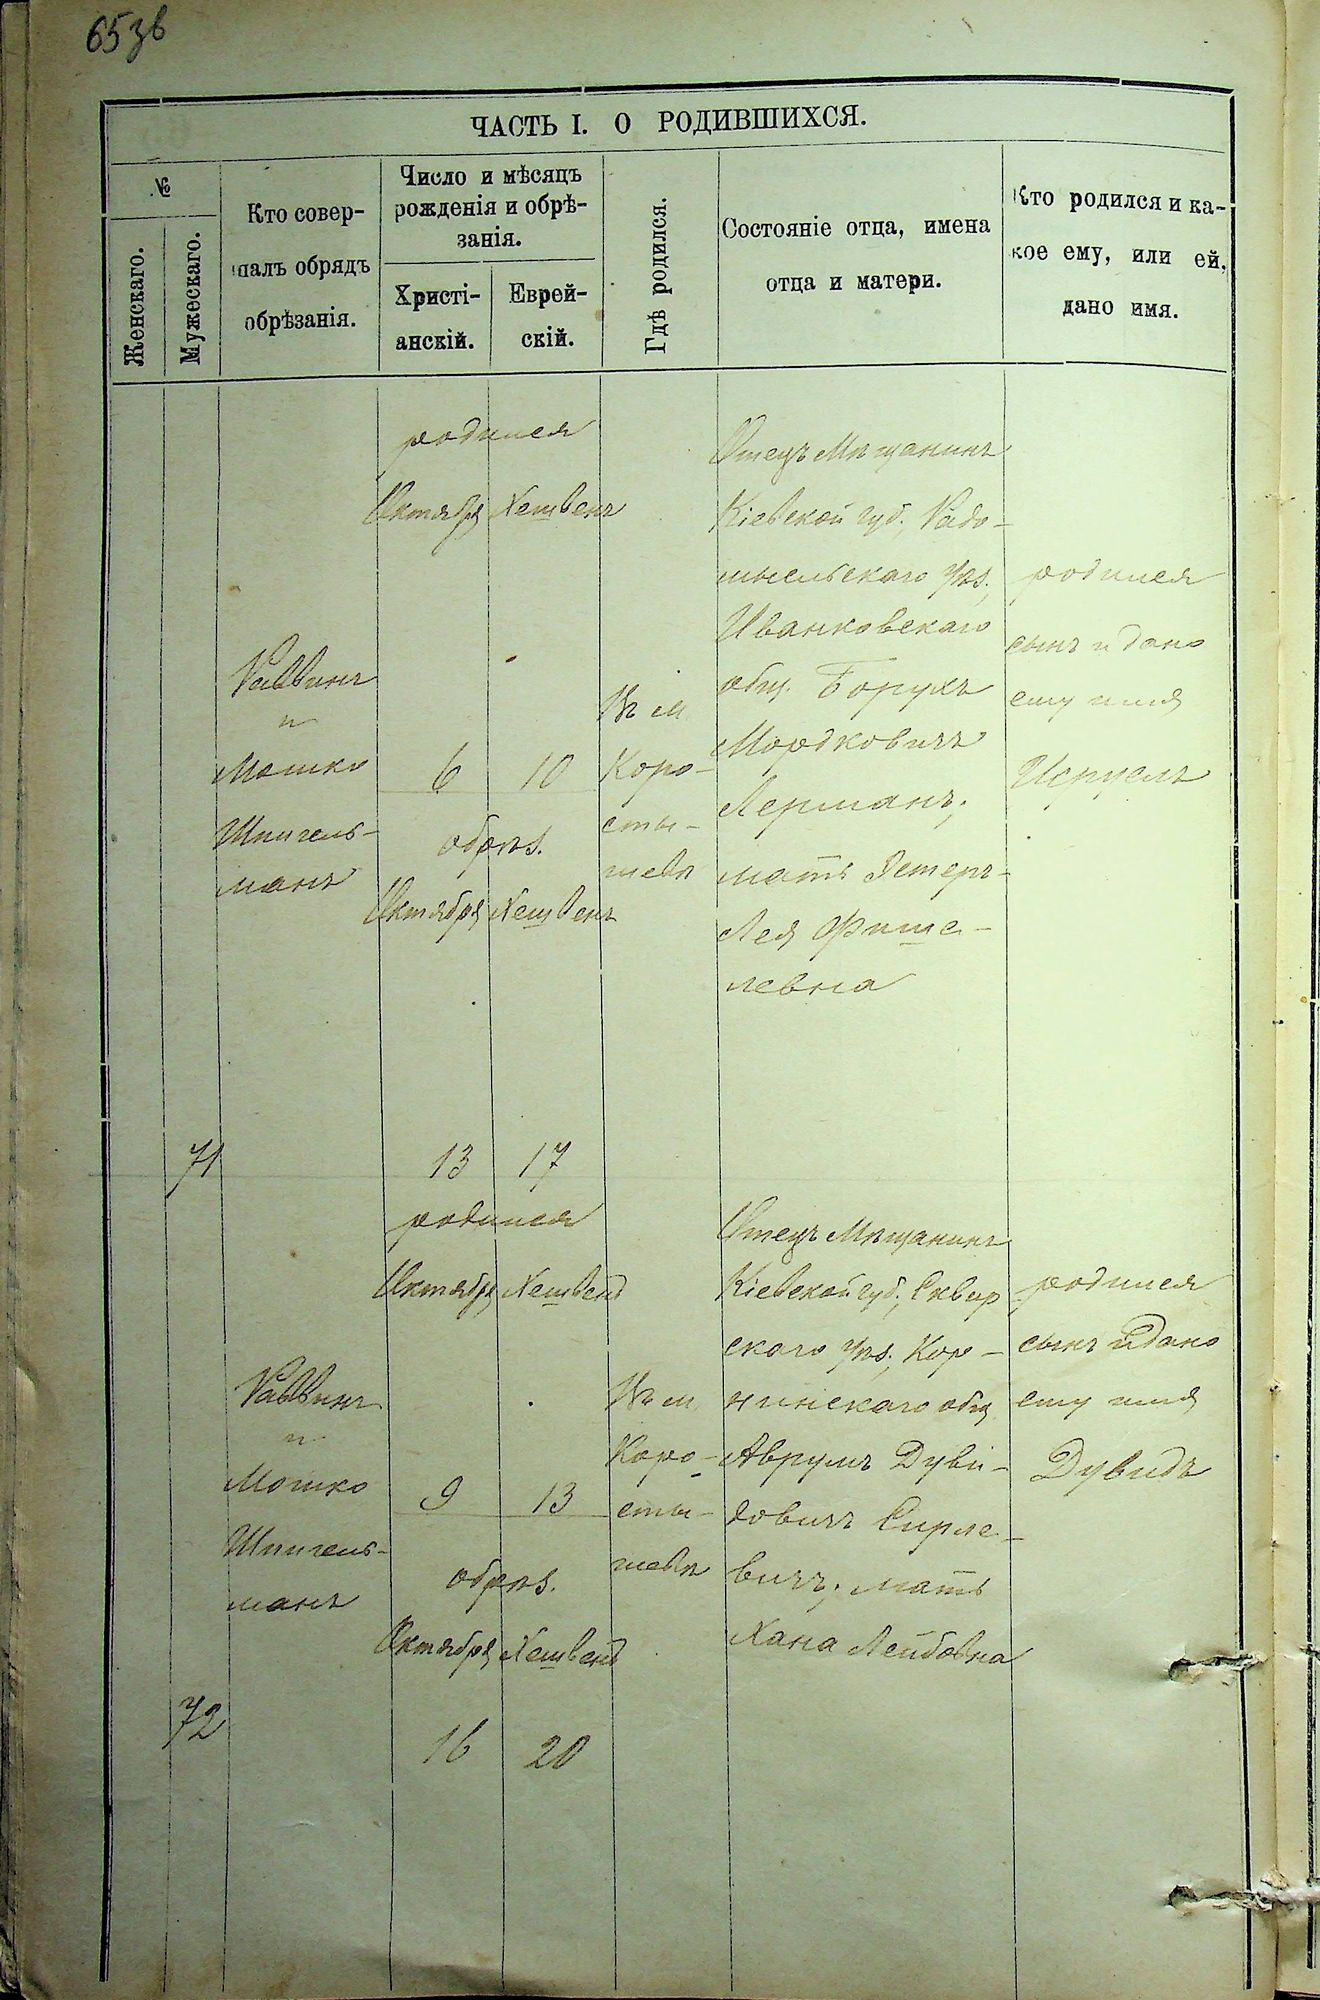 65 зв
ЧАСТЬ I. О РОДИВШИХСЯ.
№
Женскаго.
Мужескаго.
Кто совер-
шалъ обрядъ
обрѣзанія.
Число и мѣсяцъ
рожденія и обрѣ-
занія.
Христі-
анскій.
Еврей-
скій.
Гдѣ родился.
Состояніе отца, имена
отца и матери.
Кто родился и ка-
кое ему, или ей,
дано имя.
71
Раввинъ
и
Мошко
Шпигель-
манъ
родился
Октября Хешвенъ
6 10
обрѣз.
Октября Хешвенъ
13 17
Въ м.
Коро-
сты-
шевѣ
Отецъ Мѣщанинъ
Кіевской губ., Радо-
мысльскаго уѣз.,
Иванковскаго
общ. Борухъ
Мордковичъ
Лерманъ,
мать Эстеръ-
Лея Фише-
левна
родился
сынъ и дано
ему имя
Исруель
72
Раввинъ
и
Мошко
Шпигель-
манъ
родился
Октября Хешвенъ
9 13
обрѣз.
Октября Хешвенъ
16 20
Въ м.
Коро-
сты-
шевѣ
Отецъ Мѣщанинъ
Кіевской губ., Сквир
скаго уѣз., Кор-
нинскаго общ
Аврумъ Дуви-
довичъ Сирле-
вичъ, мать
Хана Лейбовна
родился
сынъ и дано
ему имя
Дувидъ